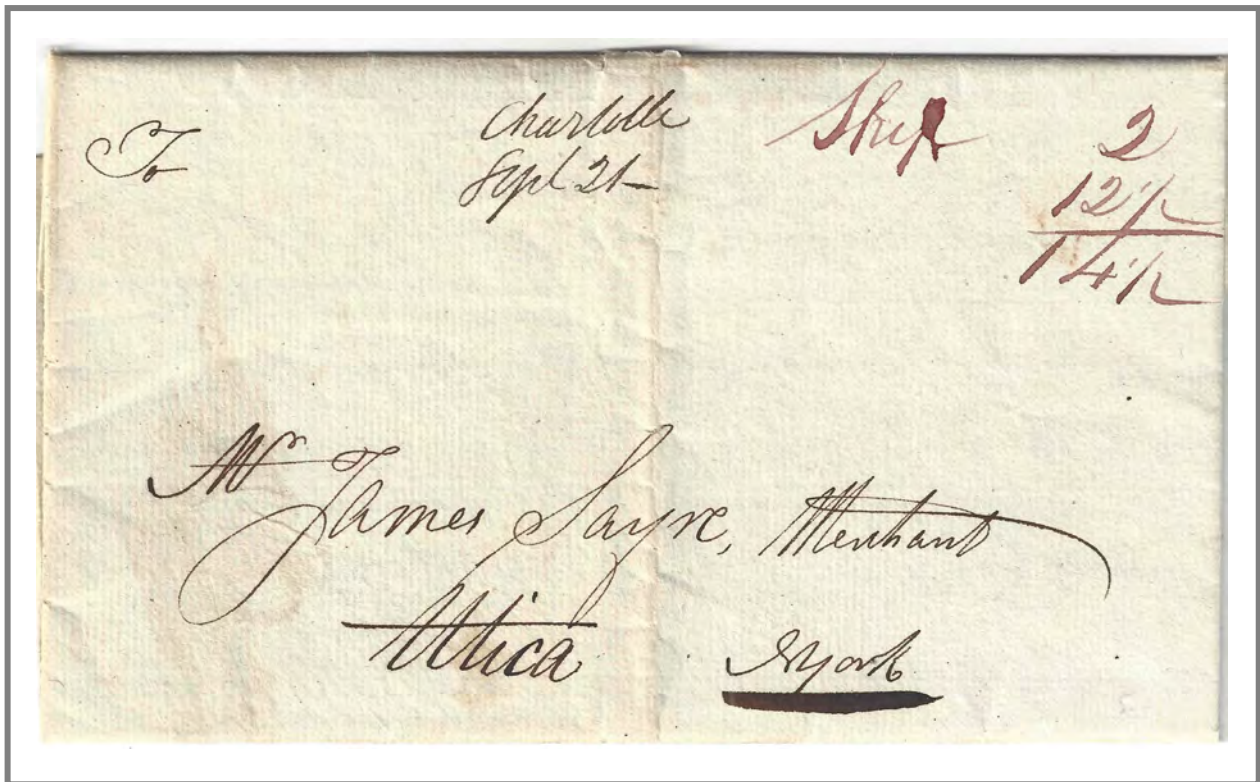 To
Charlotte
Sept 21
Ship 2
12 1/2
14 1/2
Mr James Sayre, Merchant
Utica
NYork